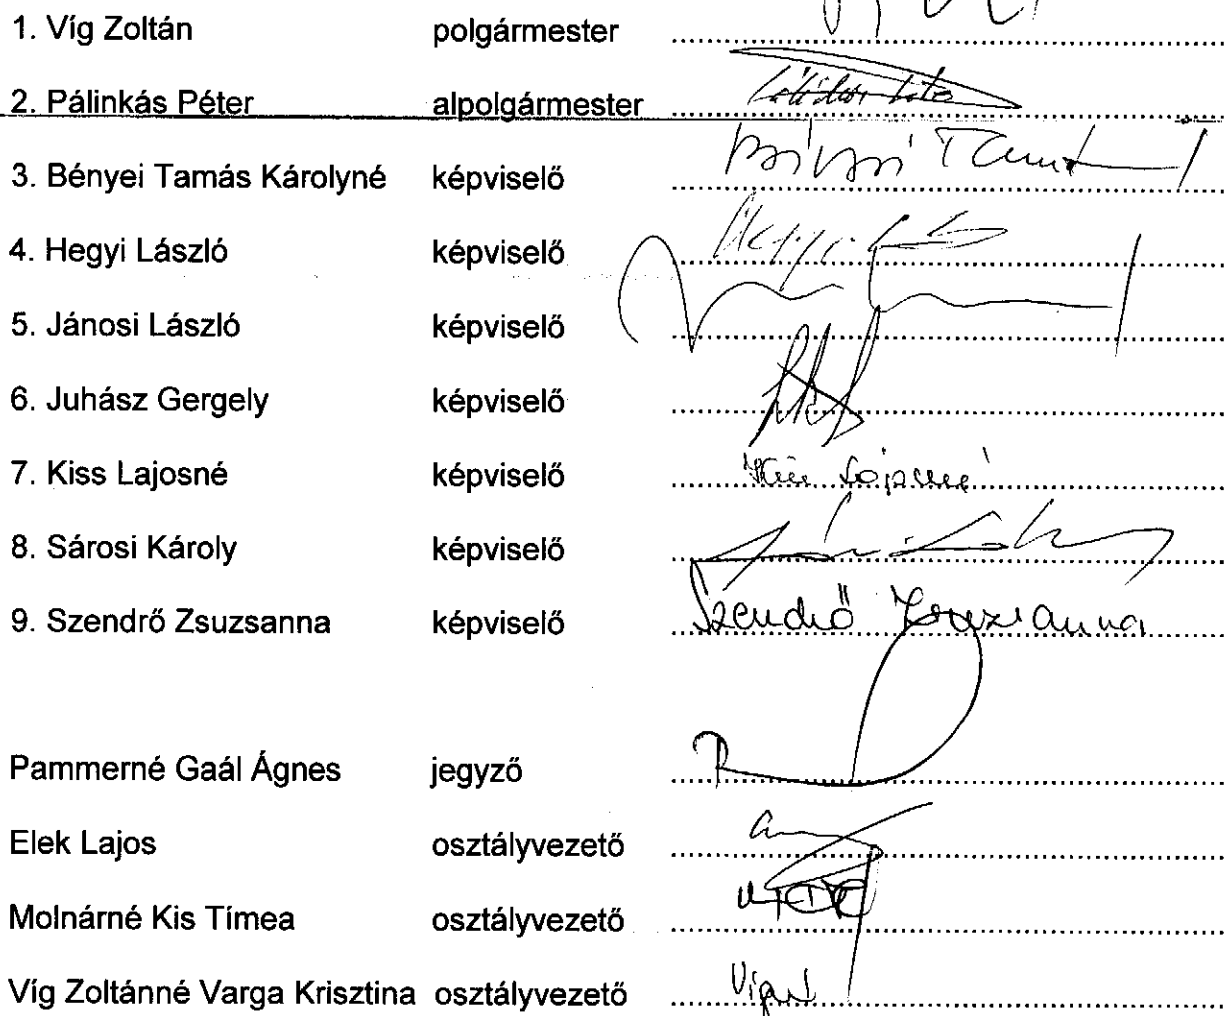 1. Víg Zoltán polgármester
2. Pálinkás Péter alpolgármester
3. Bényei Tamás Károlyné képviselő
4. Hegyi László képviselő
5. Jánosi László képviselő
6. Juhász Gergely képviselő
7. Kiss Lajosné képviselő Kiss Lajosné
8. Sárosi Károly képviselő
9. Szendrő Zsuzsanna képviselő Szendrő Zsuzsanna
Pammerné Gaál Ágnes jegyző
Elek Lajos osztályvezető
Molnárné Kis Tímea osztályvezető
Víg Zoltánné Varga Krisztina osztályvezető